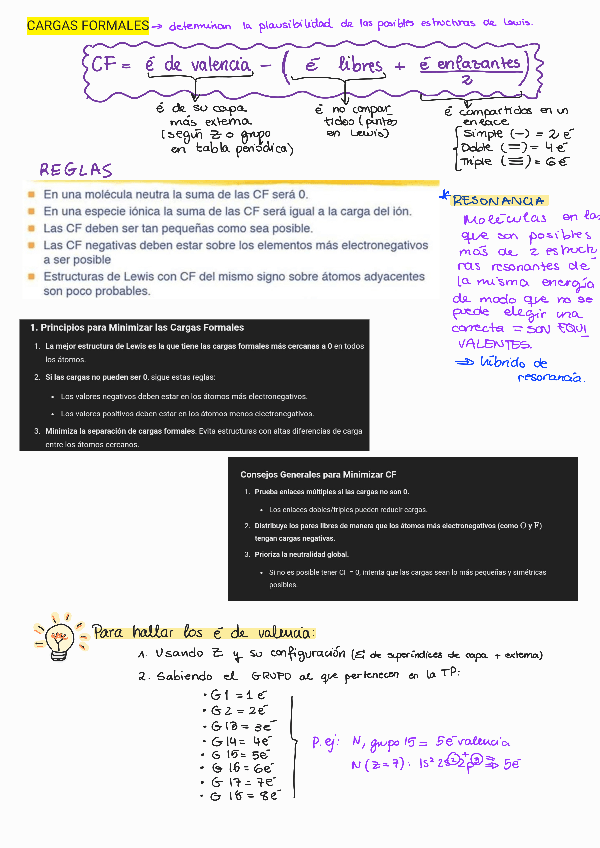 CARGAS FORMALES → determinan la plausibilidad de las posibles estructuras de Lewis.
CF = é de valencia - ( é libres + é enlazantes / 2 )
é de su capa
más externa
(según Z o grupo
en tabla periódica)
é no compar
tidos (puntos
en Lewis)
é compartidos en un
enlace
Simple (—) = 2 é
Doble (=) = 4 é
Triple (≡) = 6 é
REGLAS
En una molécula neutra la suma de las CF será 0.
En una especie iónica la suma de las CF será igual a la carga del ión.
Las CF deben ser tan pequeñas como sea posible.
Las CF negativas deben estar sobre los elementos más electronegativos
a ser posible
Estructuras de Lewis con CF del mismo signo sobre átomos adyacentes
son poco probables.
* RESONANCIA
Moléculas en las
que son posibles
más de 2 estructu
ras resonantes de
la misma energía
de modo que no se
puede elegir una
correcta = SON EQUI
VALENTES.
⇒ híbrido de
resonancia.
1. Principios para Minimizar las Cargas Formales
1. La mejor estructura de Lewis es la que tiene las cargas formales más cercanas a 0 en todos
los átomos.
2. Si las cargas no pueden ser 0, sigue estas reglas:
• Los valores negativos deben estar en los átomos más electronegativos.
• Los valores positivos deben estar en los átomos menos electronegativos.
3. Minimiza la separación de cargas formales. Evita estructuras con altas diferencias de carga
entre los átomos cercanos.
Consejos Generales para Minimizar CF
1. Prueba enlaces múltiples si las cargas no son 0.
• Los enlaces dobles/triples pueden reducir cargas.
2. Distribuye los pares libres de manera que los átomos más electronegativos (como O y F)
tengan cargas negativas.
3. Prioriza la neutralidad global.
• Si no es posible tener CF = 0, intenta que las cargas sean lo más pequeñas y simétricas
posibles.
Para hallar los é de valencia:
1. Usando Z y su configuración (Σ de superíndices de capa + externa)
2. Sabiendo el GRUPO al que pertenecen en la TP:
• G 1 = 1 é
• G 2 = 2 é
• G 13 = 3 é
• G 14 = 4 é
• G 15 = 5 é
• G 16 = 6 é
• G 17 = 7 é
• G 18 = 8 é
P. ej: N, grupo 15 = 5 é valencia
N (Z = 7) : 1s² 2s² + 2p³ ⇒ 5 é